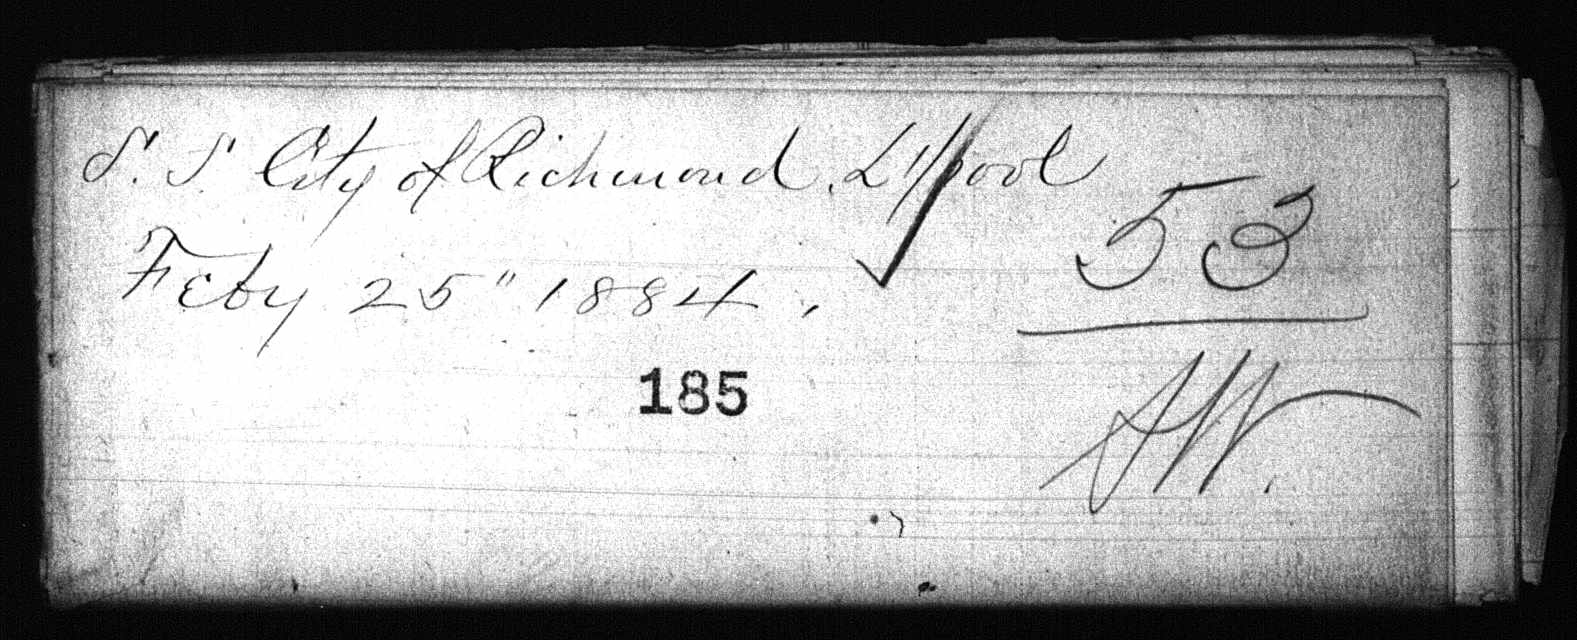 S. S. City of Richmond. L'pool
Feby 25" 1884.
53
185